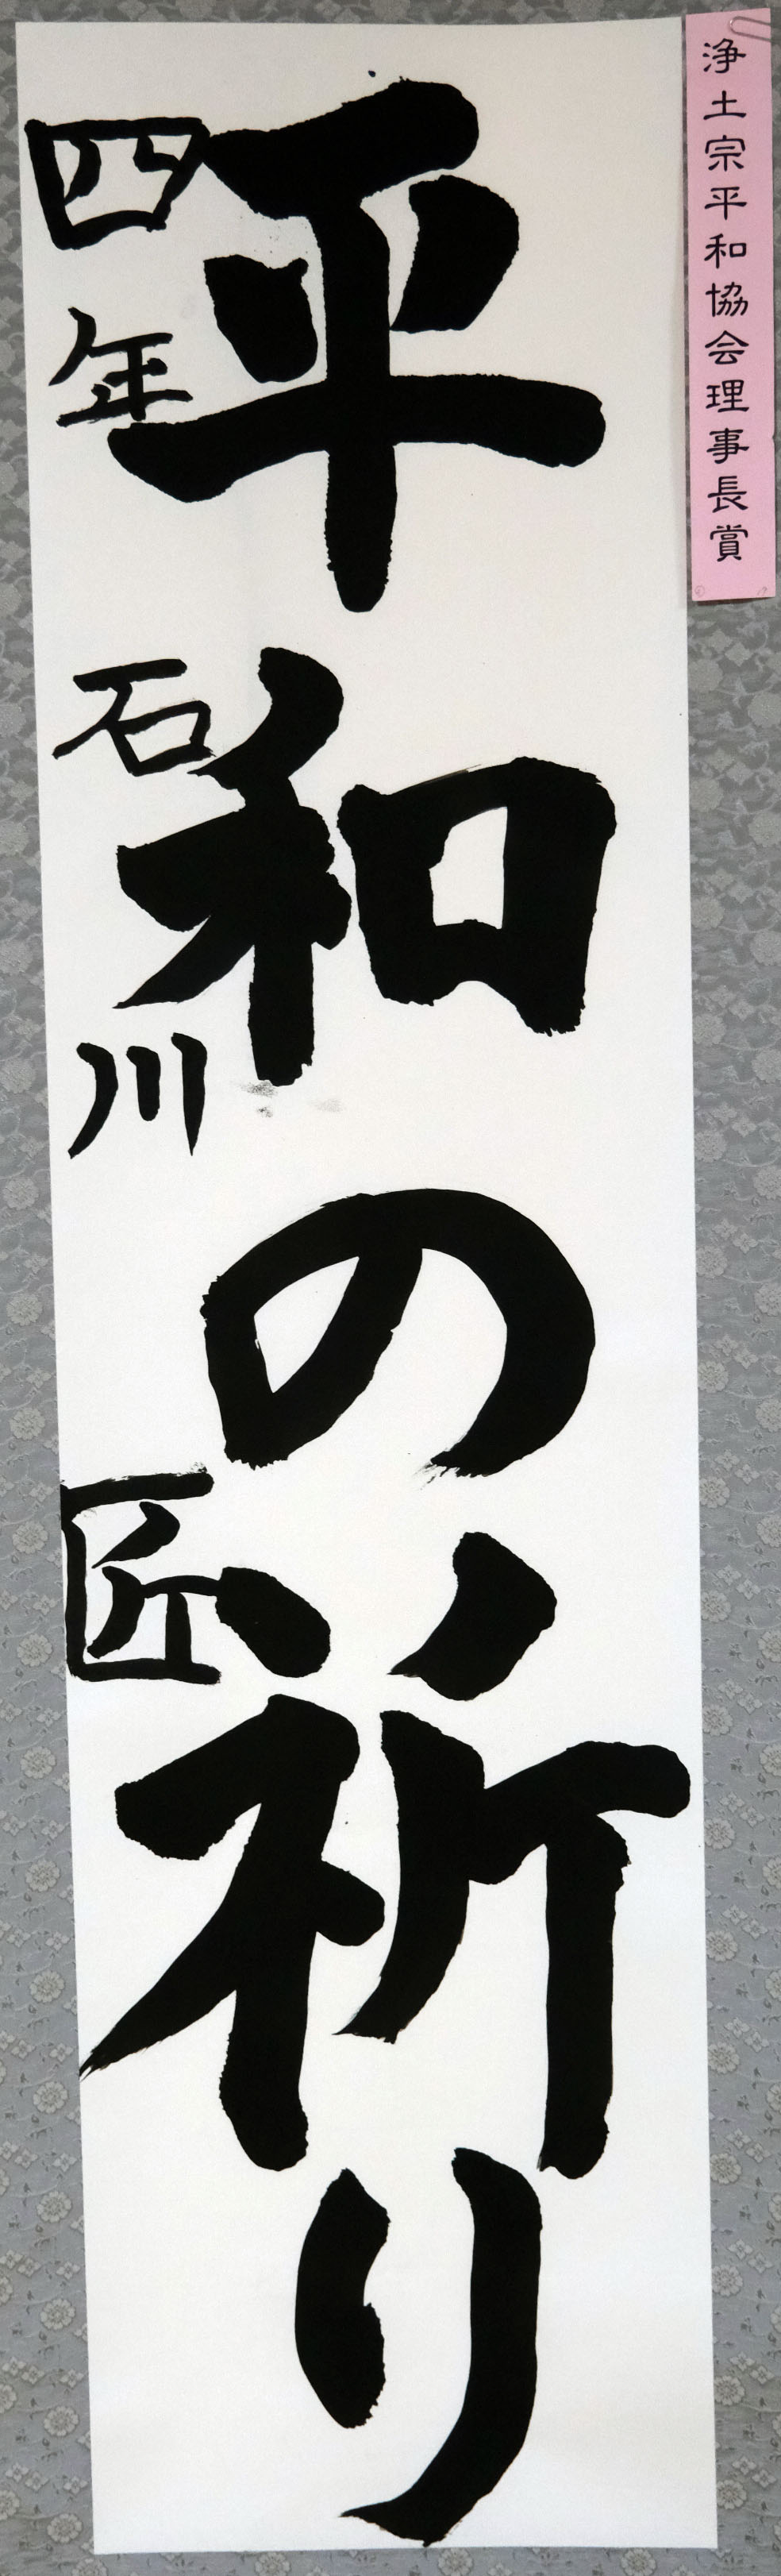 浄土宗平和協会理事長賞
平和の祈り
四年 石川 匠